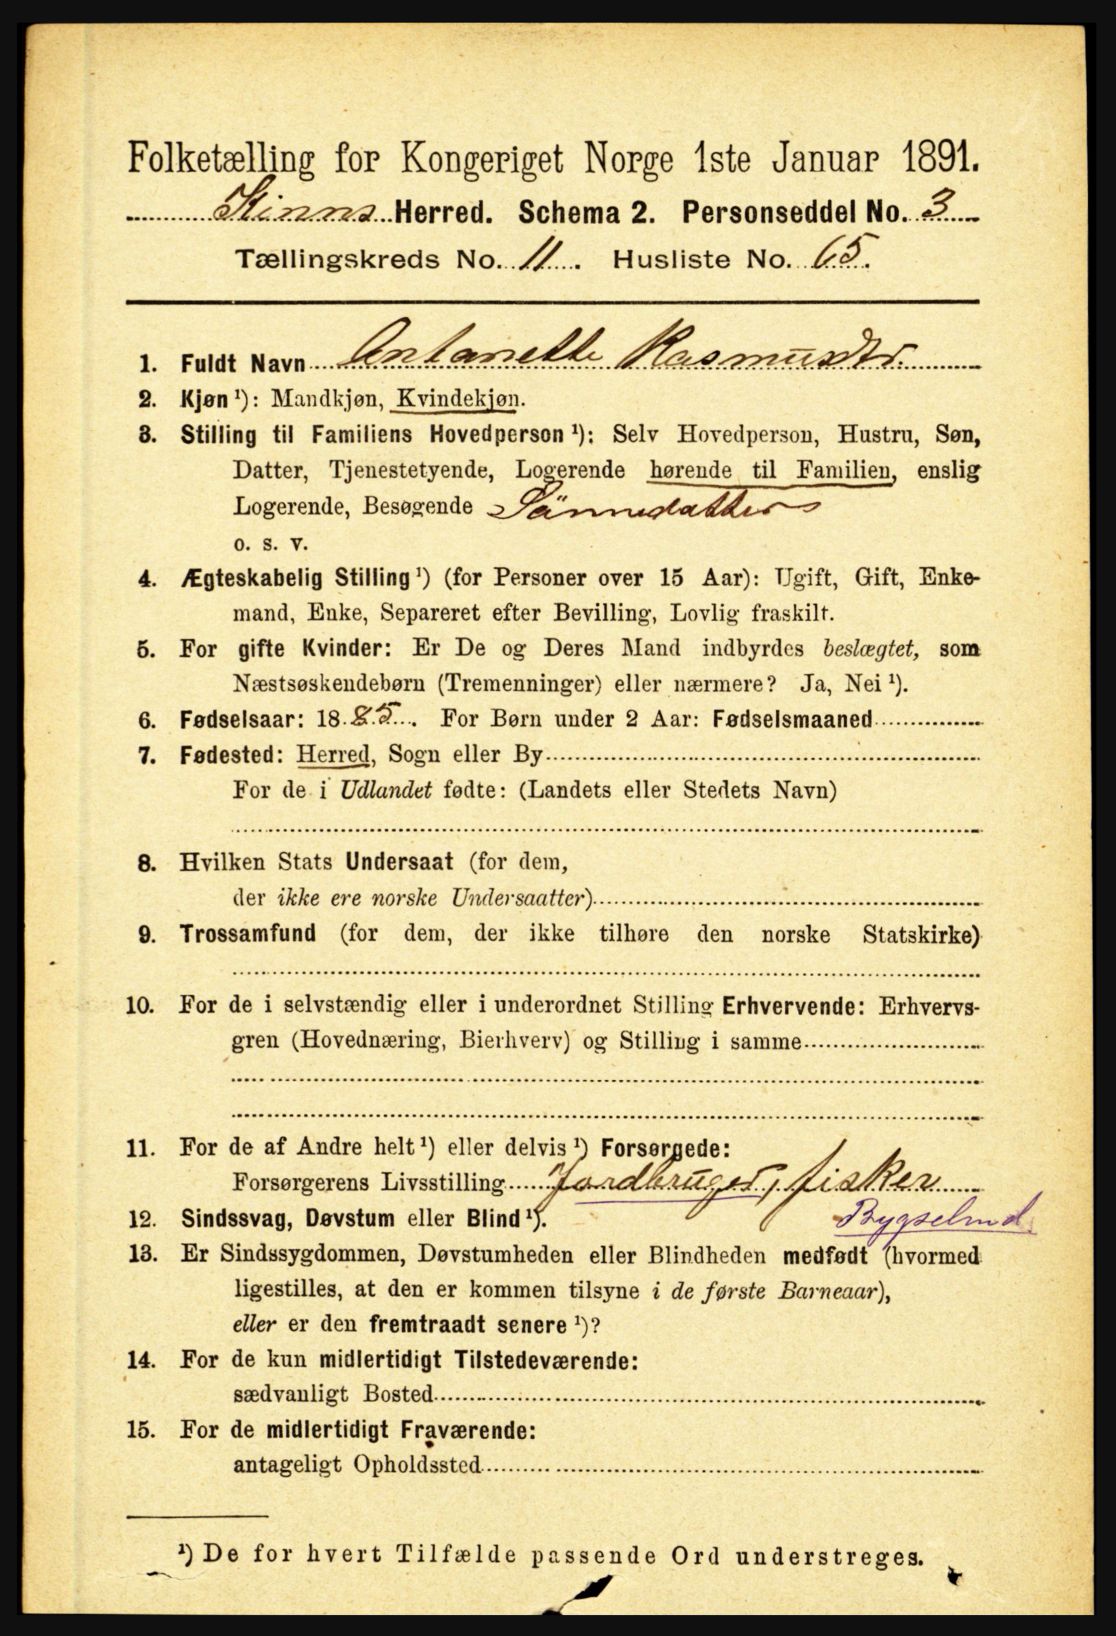 Folketælling for Kongeriget Norge 1ste Januar 1891.
Kinns Herred. Schema 2. Personseddel No. 3
Tællingskreds No. 11. Husliste No. 65.
1. Fuldt Navn Antonette Rasmusdtr.
2. Kjøn ¹): Mandkjøn, Kvindekjøn.
3. Stilling til Familiens Hovedperson ¹): Selv Hovedperson, Hustru, Søn,
Datter, Tjenestetyende, Logerende hørende til Familien, enslig
Logerende, Besøgende Sönnedatter
o. s. v.
4. Ægteskabelig Stilling ¹) (for Personer over 15 Aar): Ugift, Gift, Enke-
mand, Enke, Separeret efter Bevilling, Lovlig fraskilt.
5. For gifte Kvinder: Er De og Deres Mand indbyrdes beslægtet, som
Næstsøskendebørn (Tremenninger) eller nærmere? Ja, Nei ¹).
6. Fødselsaar: 1885. For Børn under 2 Aar: Fødselsmaaned
7. Fødested: Herred, Sogn eller By
For de i Udlandet fødte: (Landets eller Stedets Navn)
8. Hvilken Stats Undersaat (for dem,
der ikke ere norske Undersaatter)
9. Trossamfund (for dem, der ikke tilhøre den norske Statskirke)
10. For de i selvstændig eller i underordnet Stilling Erhvervende: Erhvervs-
gren (Hovednæring, Bierhverv) og Stilling i samme
11. For de af Andre helt ¹) eller delvis ¹) Forsørgede:
Forsørgerens Livsstilling Jordbruger, fisker
12. Sindssvag, Døvstum eller Blind ¹). Bygselmd.
13. Er Sindssygdommen, Døvstumheden eller Blindheden medfødt (hvormed
ligestilles, at den er kommen tilsyne i de første Barneaar),
eller er den fremtraadt senere ¹)?
14. For de kun midlertidigt Tilstedeværende:
sædvanligt Bosted
15. For de midlertidigt Fraværende:
antageligt Opholdssted
¹) De for hvert Tilfælde passende Ord understreges.